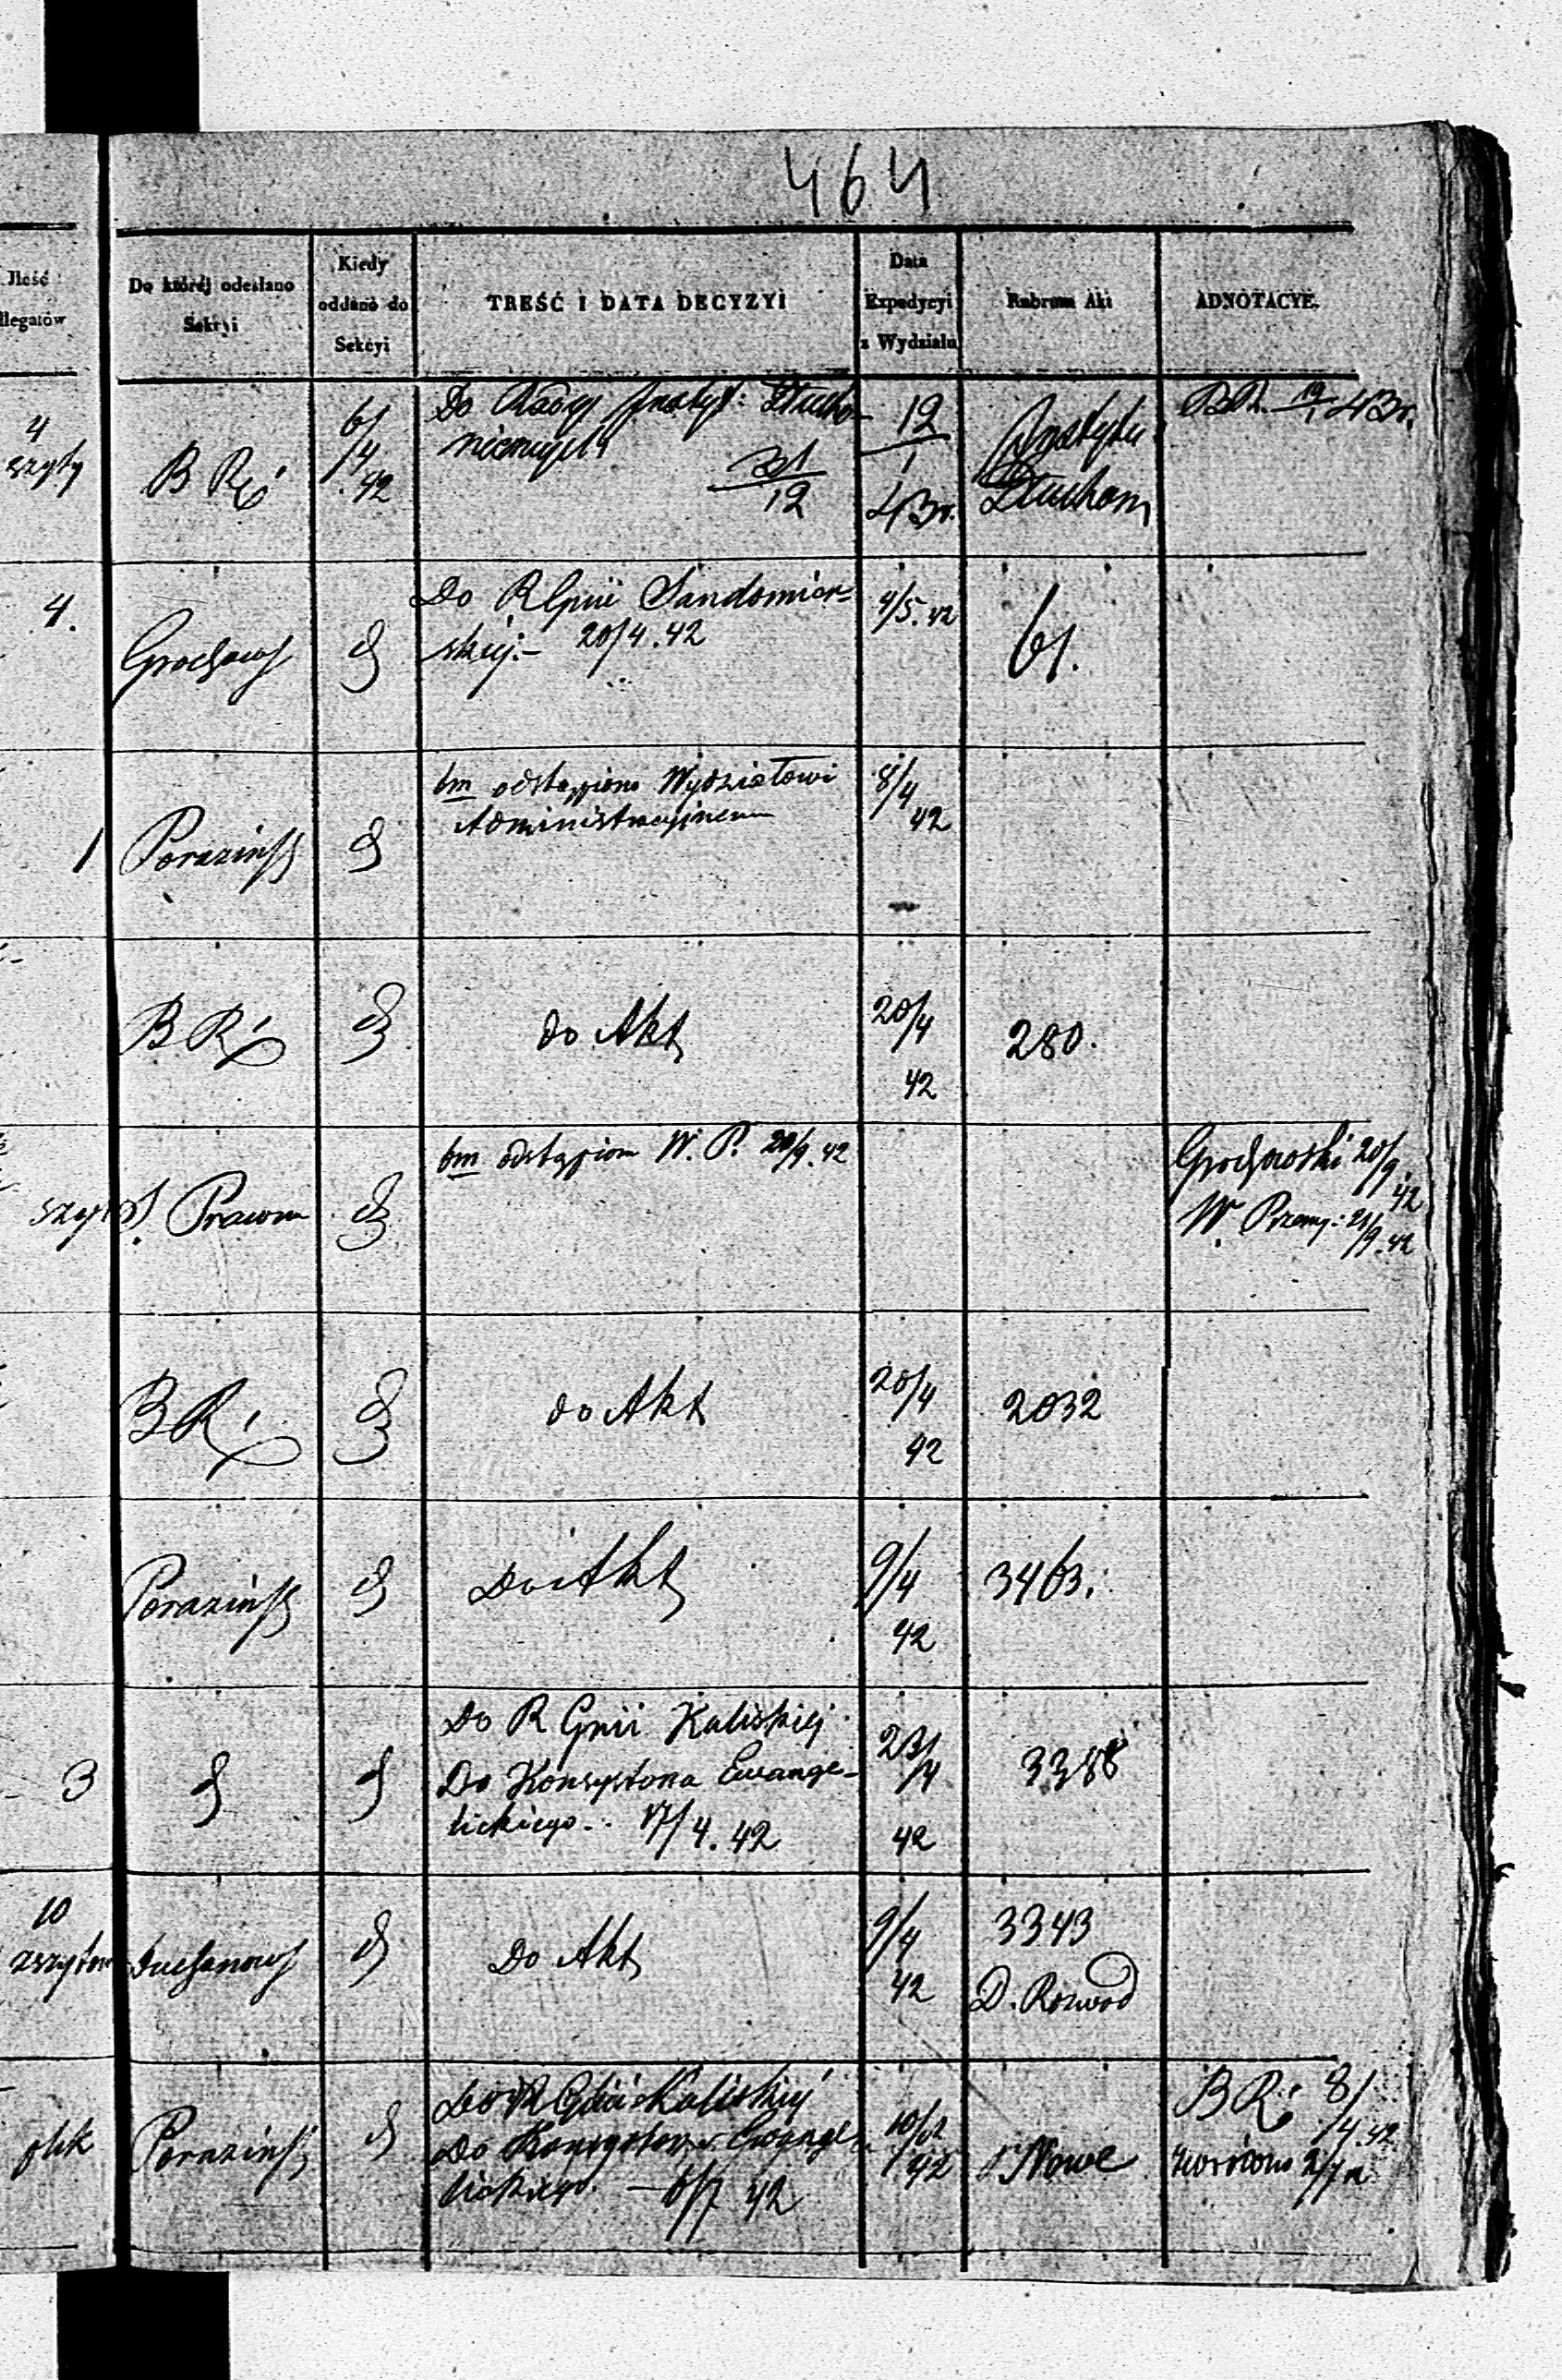 464
Ilość
llegatów
Do któréj odesłano
Sekcyi
Kiedy
oddano do
Sekcyi
TREŚĆ I DATA DECYZYI
Data
Expedycyi
z Wydziału
Rubrum Akt
ADNOTACYE.
4
szyty
B R
6/4 42
Do Rady Instyt: Głucho-
niemych
31/12
12/1
43 r.
Instytu
Głuchom
BR. 12/1 43 r.
4.
Grochows
Do R Gnii Sandomier-
skiej:- 20/4.42
4/5.42
61.
1
Porazińs
6m odstąpiono Wydziałowi
Administracyjnemu
8/4
42
B R
do Akt
20/4
42
280.
szyt
S. Prawna
6m odstąpiono W. P. 20/9.42
Grochowski 20/9
42
W. Przemy: 21/9.42
B R
do Akt
20/4
42
2032
Porazińs
Do Akt
9/4
42
3463.
3
Do R Gnii Kaliskiej
Do Konsystorza Ewange-
lickiego.. 17/4.42
23/4
42
3388
10
zszytów
Do Akt
9/4
42
3343
D. Rozwod
plik
Porazińs
Do R Gnii Kaliskiej
Do Konsystorza Ewange-
lickiego. - 6/7 42
10/12
42
Nowe
B R 8/4.42
zwrócono 2/7